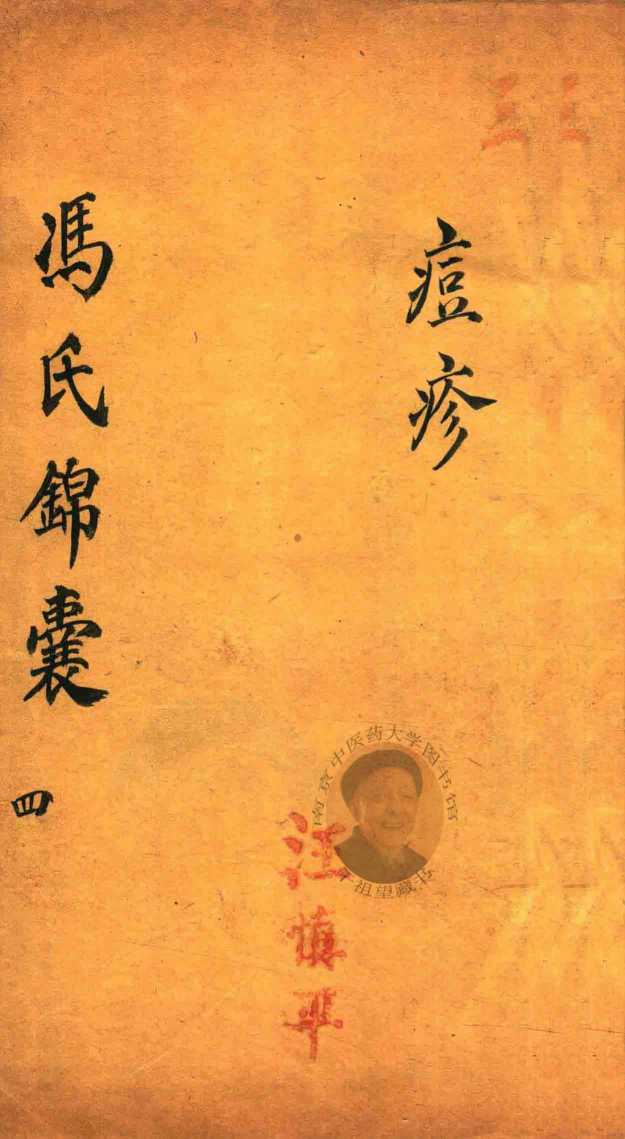 痘疹
馮氏錦囊
四
南京中医药大学图书馆
祖望藏书
汪慎平